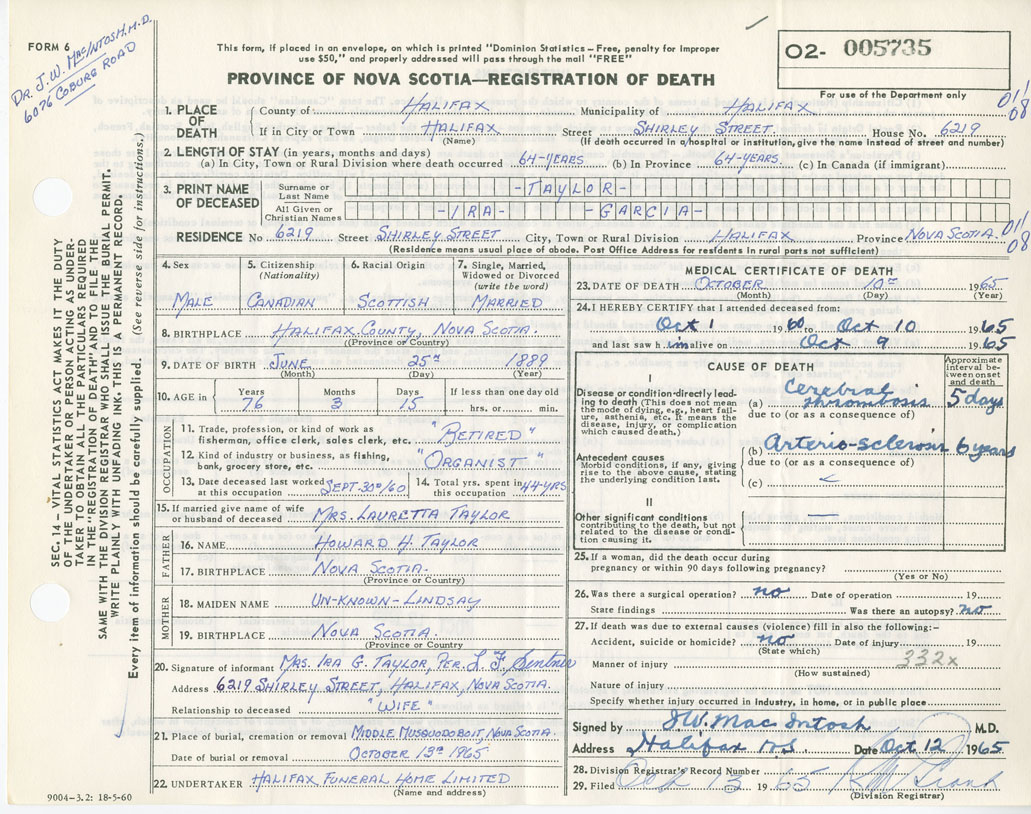 FORM 6
DR. J. W. MACINTOSH, M.D.
6076 COBURG ROAD
This form, if placed in an envelope, on which is printed "Dominion Statistics – Free, penalty for improper
use $50," and properly addressed will pass through the mail "FREE"
PROVINCE OF NOVA SCOTIA—REGISTRATION OF DEATH
O2- 005735
For use of the Department only
011
08
1. PLACE OF DEATH
County of HALIFAX Municipality of HALIFAX
If in City or Town HALIFAX Street SHIRLEY STREET House No. 6219
(Name) (If death occurred in a hospital or institution, give the name instead of street and number)
2. LENGTH OF STAY (in years, months and days)
(a) In City, Town or Rural Division where death occurred 64-YEARS (b) In Province 64-YEARS. (c) In Canada (if immigrant)
3. PRINT NAME OF DECEASED
Surname or Last Name -TAYLOR-
All Given or Christian Names -IRA- -GARCIA-
RESIDENCE No 6219 Street SHIRLEY STREET City, Town or Rural Division HALIFAX Province NOVA SCOTIA.
011
08
(Residence means usual place of abode. Post Office Address for residents in rural parts not sufficient)
4. Sex
MALE
5. Citizenship
(Nationality)
CANADIAN
6. Racial Origin
SCOTTISH
7. Single, Married,
Widowed or Divorced
(write the word)
MARRIED
8. BIRTHPLACE HALIFAX COUNTY, NOVA SCOTIA.
(Province or Country)
9. DATE OF BIRTH JUNE 25TH 1889
(Month) (Day) (Year)
10. AGE in Years 76 Months 3 Days 15 If less than one day old
hrs. or min.
OCCUPATION
11. Trade, profession, or kind of work as
fisherman, office clerk, sales clerk, etc. "RETIRED"
12. Kind of industry or business, as fishing,
bank, grocery store, etc. "ORGANIST"
13. Date deceased last worked
at this occupation SEPT. 30TH/60
14. Total yrs. spent in
this occupation 44-YRS
15. If married give name of wife
or husband of deceased MRS. LAURETTA TAYLOR
FATHER
16. NAME HOWARD H. TAYLOR
17. BIRTHPLACE NOVA SCOTIA.
(Province or Country)
MOTHER
18. MAIDEN NAME UN-KNOWN-LINDSAY
19. BIRTHPLACE NOVA SCOTIA.
(Province or Country)
20. Signature of informant MRS. IRA G. TAYLOR, PER. L. F.
Address 6219 SHIRLEY STREET, HALIFAX, NOVA SCOTIA.
Relationship to deceased "WIFE"
21. Place of burial, cremation or removal MIDDLE MUSQUODOBOIT, NOVA SCOTIA.
Date of burial or removal OCTOBER 13TH 1965
22. UNDERTAKER HALIFAX FUNERAL HOME LIMITED
(Name and address)
9004-3.2: 18-5-60
MEDICAL CERTIFICATE OF DEATH
23. DATE OF DEATH OCTOBER 10TH 1965
(Month) (Day) (Year)
24. I HEREBY CERTIFY that I attended deceased from:
Oct 1 1960 to Oct 10 1965
and last saw him alive on Oct 9 1965
CAUSE OF DEATH
Approximate
interval be-
tween onset
and death
I
Disease or condition directly lead-
ing to death (This does not mean
the mode of dying, e.g., heart fail-
ure, asthenia, etc. It means the
disease, injury, or complication
which caused death.)
(a) Cerebral thrombosis 5 days
due to (or as a consequence of)
Antecedent causes
Morbid conditions, if any, giving
rise to the above cause, stating
the underlying condition last.
(b) Arterio-sclerosis 6 years
due to (or as a consequence of)
(c)
II
Other significant conditions
contributing to the death, but not
related to the disease or condi-
tion causing it.
25. If a woman, did the death occur during
pregnancy or within 90 days following pregnancy?
(Yes or No)
26. Was there a surgical operation? no Date of operation 19
State findings Was there an autopsy? no
27. If death was due to external causes (violence) fill in also the following:-
Accident, suicide or homicide? no Date of injury 19
(State which)
332x
Manner of injury
(How sustained)
Nature of injury
Specify whether injury occurred in industry, in home, or in public place
Signed by J W. MacIntosh M.D.
Address Halifax N.S Date Oct 12 1965
28. Division Registrar's Record Number
29. Filed Oct 13 1965
(Division Registrar)
SEC. 14 — VITAL STATISTICS ACT MAKES IT THE DUTY
OF THE UNDERTAKER OR PERSON ACTING AS UNDER-
TAKER TO OBTAIN ALL THE PARTICULARS REQUIRED
IN THE "REGISTRATION OF DEATH" AND TO FILE THE
SAME WITH THE DIVISION REGISTRAR WHO SHALL ISSUE THE BURIAL PERMIT.
WRITE PLAINLY WITH UNFADING INK. THIS IS A PERMANENT RECORD.
Every item of information should be carefully supplied. (See reverse side for instructions.)